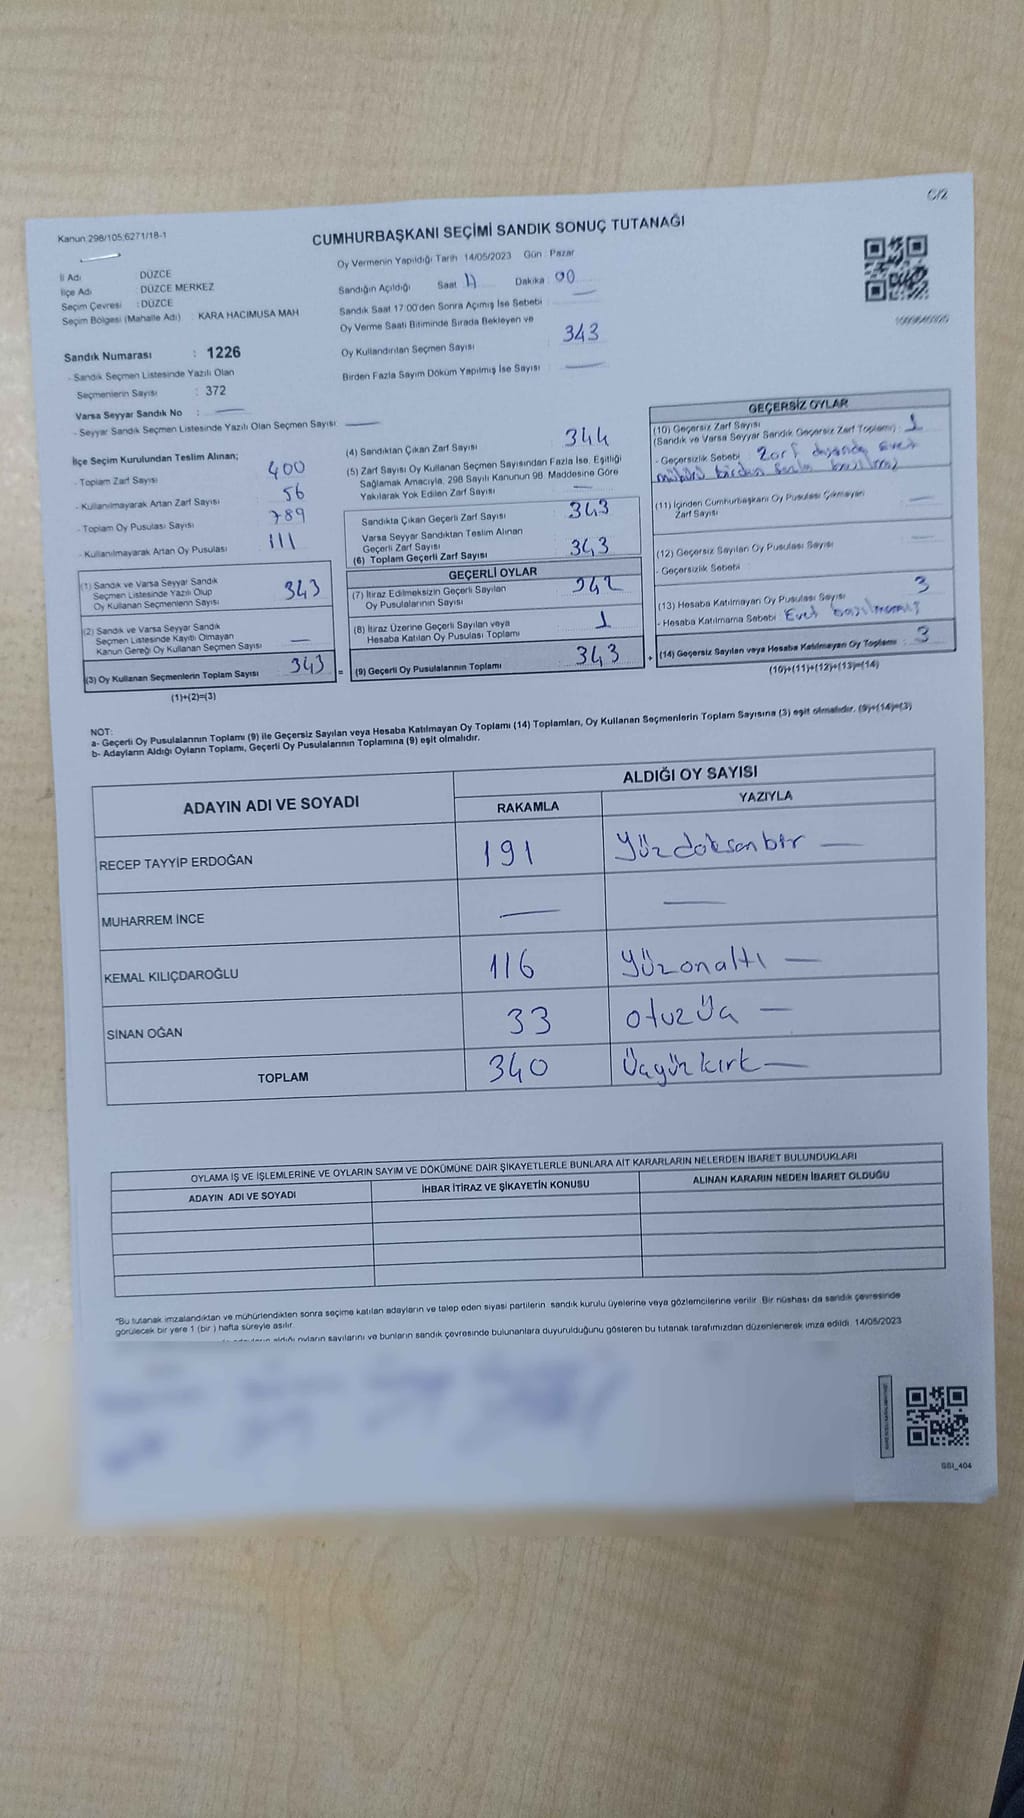 C/2
Kanun 298/105;6271/18-1
CUMHURBAŞKANI SEÇİMİ SANDIK SONUÇ TUTANAĞI
İl Adı : DÜZCE
İlçe Adı : DÜZCE MERKEZ
Seçim Çevresi : DÜZCE
Seçim Bölgesi (Mahalle Adı) : KARA HACIMUSA MAH
Oy Vermenin Yapıldığı Tarih 14/05/2023 Gün : Pazar
Sandığın Açıldığı Saat Dakika : 00
Sandık Saat 17:00'den Sonra Açımış İse Sebebi
Oy Verme Saati Bitiminde Sırada Bekleyen ve
Oy Kullandırılan Seçmen Sayısı : 343
Birden Fazla Sayım Döküm Yapılmış İse Sayısı : —
Sandık Numarası : 1226
- Sandık Seçmen Listesinde Yazılı Olan
Seçmenlerin Sayısı : 372
Varsa Seyyar Sandık No : —
- Seyyar Sandık Seçmen Listesinde Yazılı Olan Seçmen Sayısı : —
İlçe Seçim Kurulundan Teslim Alınan;
- Toplam Zarf Sayısı 400
- Kullanılmayarak Artan Zarf Sayısı 56
- Toplam Oy Pusulası Sayısı 789
- Kullanılmayarak Artan Oy Pusulası 111
(1) Sandık ve Varsa Seyyar Sandık
Seçmen Listesinde Yazılı Olup
Oy Kullanan Seçmenlerin Sayısı 343
(2) Sandık ve Varsa Seyyar Sandık
Seçmen Listesinde Kayıtlı Olmayan
Kanun Gereği Oy Kullanan Seçmen Sayısı —
(3) Oy Kullanan Seçmenlerin Toplam Sayısı 343
(1)+(2)=(3)
(4) Sandıktan Çıkan Zarf Sayısı 344
(5) Zarf Sayısı Oy Kullanan Seçmen Sayısından Fazla İse, Eşitliği
Sağlamak Amacıyla, 298 Sayılı Kanunun 98. Maddesine Göre
Yakılarak Yok Edilen Zarf Sayısı —
Sandıkta Çıkan Geçerli Zarf Sayısı 343
Varsa Seyyar Sandıktan Teslim Alınan
Geçerli Zarf Sayısı
(6) Toplam Geçerli Zarf Sayısı 343
GEÇERLİ OYLAR
(7) İtiraz Edilmeksizin Geçerli Sayılan
Oy Pusulalarının Sayısı 342
(8) İtiraz Üzerine Geçerli Sayılan veya
Hesaba Katılan Oy Pusulası Toplamı 1
= (9) Geçerli Oy Pusulalarının Toplamı 343 +
GEÇERSİZ OYLAR
(10) Geçersiz Zarf Sayısı
(Sandık ve Varsa Seyyar Sandık Geçersiz Zarf Toplamı) : 1
- Geçersizlik Sebebi : Zarf dışında Evet
mühürü birden fazla
(11) İçinden Cumhurbaşkanı Oy Pusulası Çıkmayan
Zarf Sayısı —
(12) Geçersiz Sayılan Oy Pusulası Sayısı —
- Geçersizlik Sebebi
(13) Hesaba Katılmayan Oy Pusulası Sayısı 3
- Hesaba Katılmama Sebebi : Evet basılmamış
(14) Geçersiz Sayılan veya Hesaba Katılmayan Oy Toplamı 3
(10)+(11)+(12)+(13)=(14)
NOT:
a- Geçerli Oy Pusulalarının Toplamı (9) ile Geçersiz Sayılan veya Hesaba Katılmayan Oy Toplamı (14) Toplamları, Oy Kullanan Seçmenlerin Toplam Sayısına (3) eşit olmalıdır. (9)+(14)=(3)
b- Adayların Aldığı Oyların Toplamı, Geçerli Oy Pusulalarının Toplamına (9) eşit olmalıdır.
ADAYIN ADI VE SOYADI ALDIĞI OY SAYISI
RAKAMLA YAZIYLA
RECEP TAYYİP ERDOĞAN 191 Yüzdoksanbir —
MUHARREM İNCE — —
KEMAL KILIÇDAROĞLU 116 yüzonaltı —
SİNAN OĞAN 33 otuzüç —
TOPLAM 340 Üçyüzkırk —
OYLAMA İŞ VE İŞLEMLERİNE VE OYLARIN SAYIM VE DÖKÜMÜNE DAİR ŞİKAYETLERLE BUNLARA AİT KARARLARIN NELERDEN İBARET BULUNDUKLARI
ADAYIN ADI VE SOYADI İHBAR İTİRAZ VE ŞİKAYETİN KONUSU ALINAN KARARIN NEDEN İBARET OLDUĞU
*Bu tutanak imzalandıktan ve mühürlendikten sonra seçime katılan adayların ve talep eden siyasi partilerin sandık kurulu üyelerine veya gözlemcilerine verilir. Bir nüshası da sandık çevresinde
görülecek bir yere 1 (bir ) hafta süreyle asılır.
aldığı oyların sayılarını ve bunların sandık çevresinde bulunanlara duyurulduğunu gösteren bu tutanak tarafımızdan düzenlenerek imza edildi. 14/05/2023
SSI_404